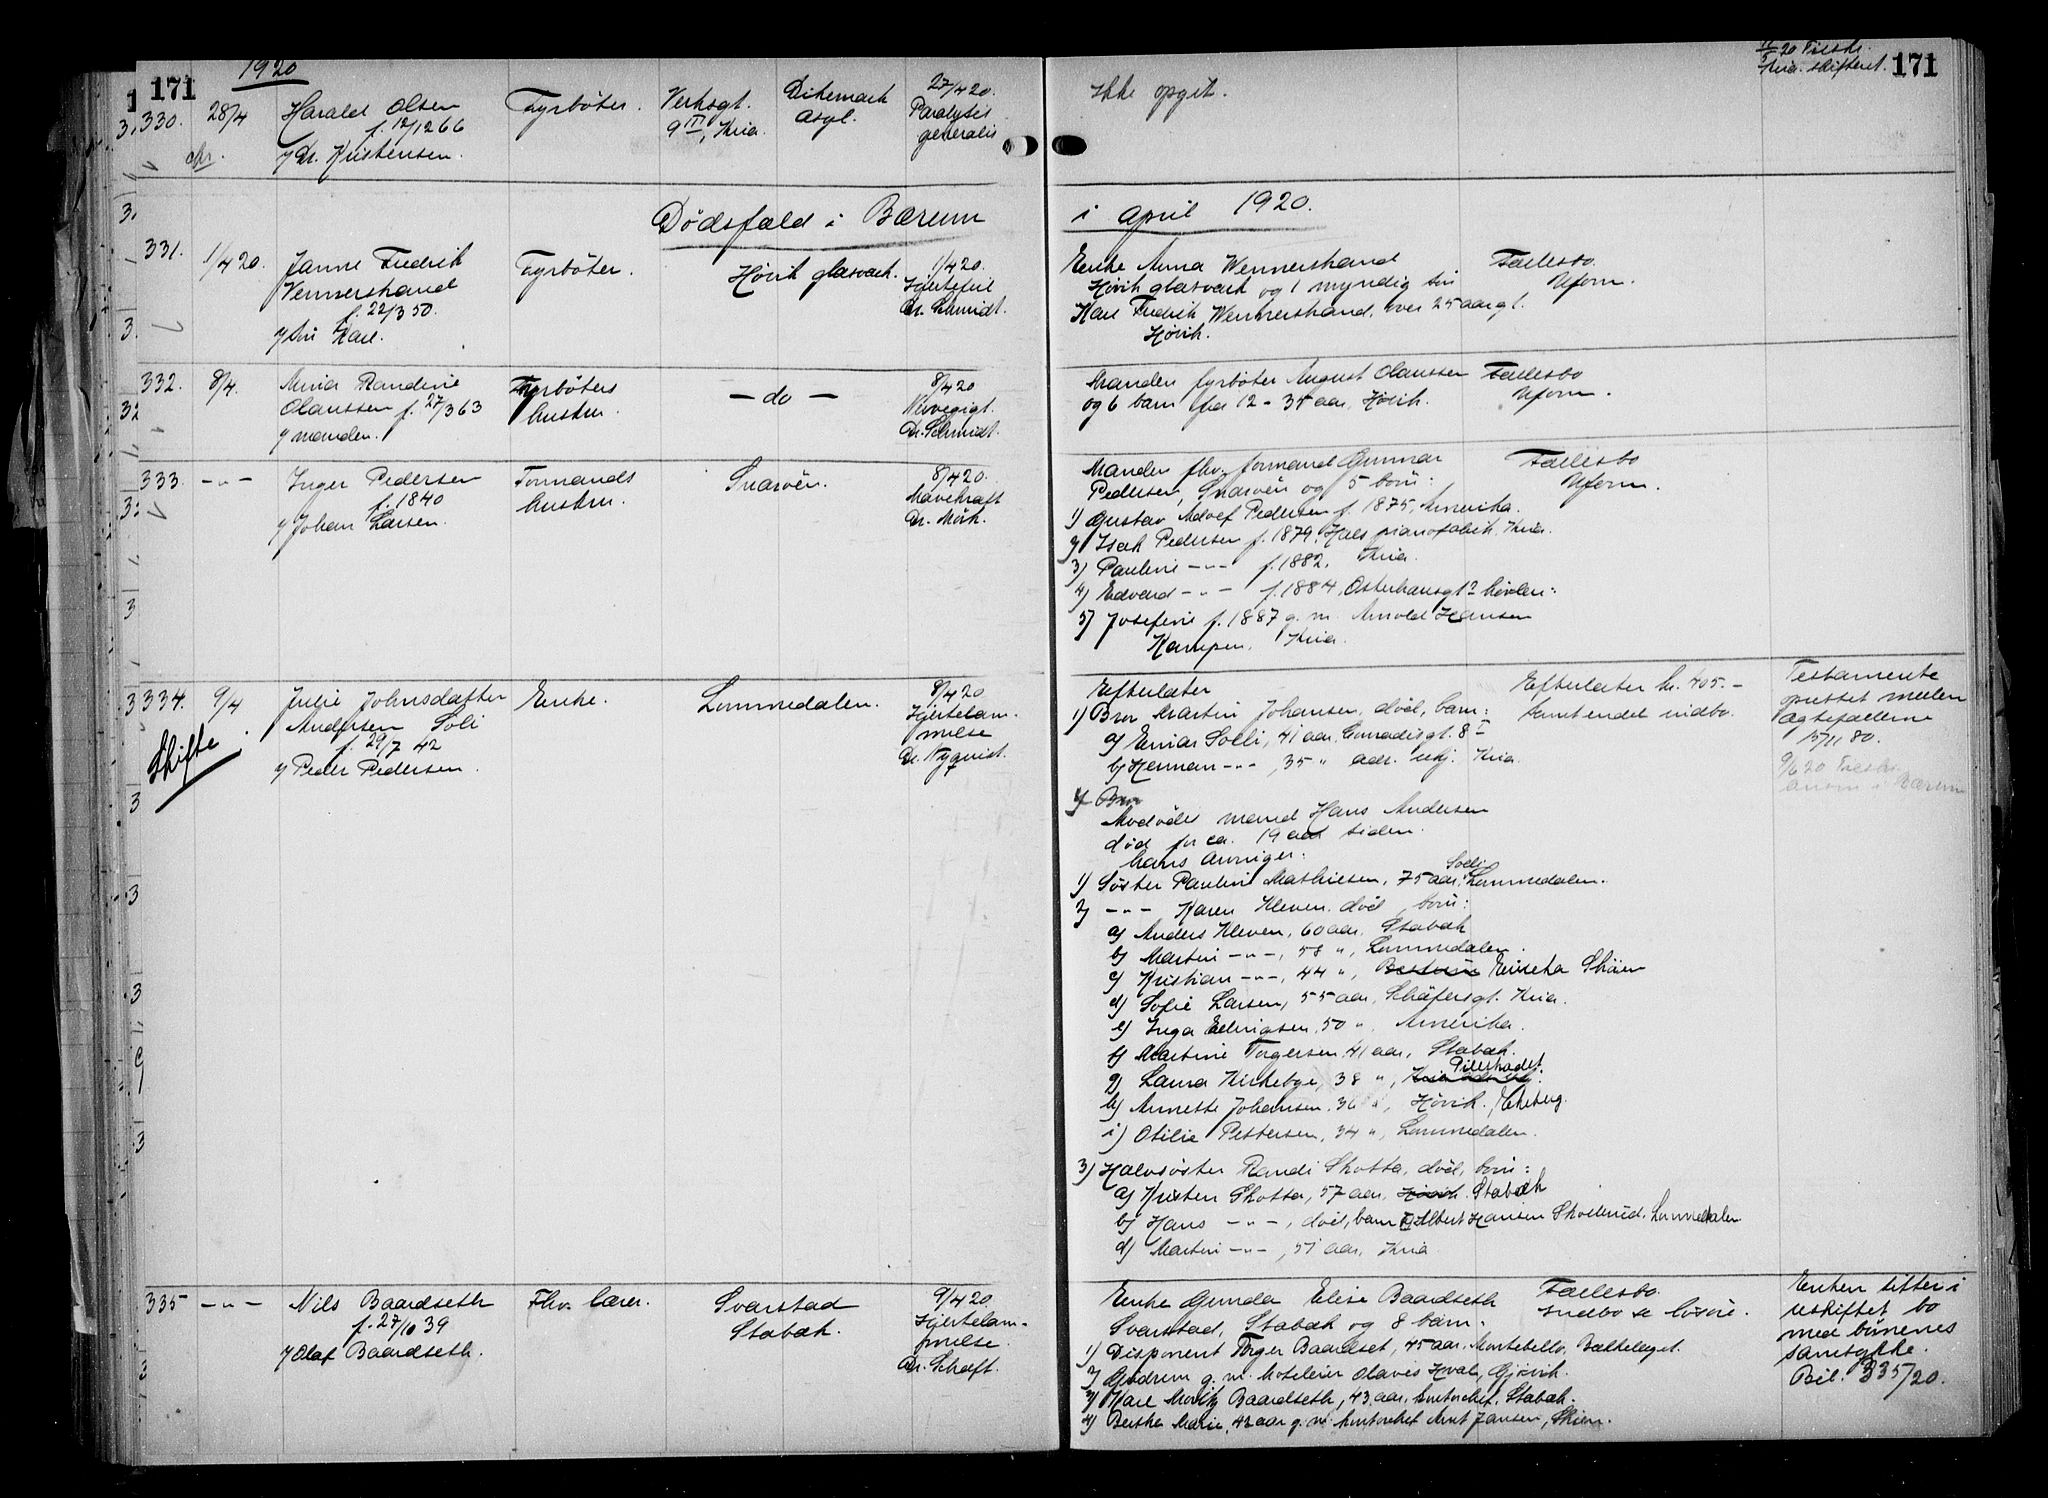 171
1920
330.
28/4
Harald Olsen
f. 12/12 66
v/ Dr. Kristensen.
Fyrbøter.
Verksgt.
9 II, Kria.
Dikemark
asyl.
27/4 20.
Paralysis
generalis
Ikke opgit.
Kria. skifteret.
171
Dødsfald i Bærum
i april 1920.
331.
1/4 20.
Janne Fredrik
Wennerstrand
f. 22/3 50.
Karl.
Fyrbøter.
Høvik glasværk.
1/4 20.
Hjertefeil
Dr. Schmidt.
Enke Anna Wennerstrand
Høvik glasværk og 1 myndig søn
Karl Fredrik Wennerstrand, over 25 aar gl.
Høvik.
Fællesbo
Uform.
332.
8/4.
Olaussen f. 27/3 63
v/ manden.
Fyrbøters
hustru.
— do —
8/4 20
Dr. Schmidt.
Manden fyrbøter August Olaussen
og 6 barn fra 12 - 35 aar, Høvik.
Fællesbo
Uform.
333.
-"-
Inger Pedersen
f. 1840
v/ Johan Larsen.
Formands
hustru.
Snarøen.
8/4 20.
Mavekræft
Dr. Mørk.
Manden fhv. formand Gunnar
Pedersen, Snarøen og 5 børn:
1) Gustav Adolf Pedersen f. 1875, Amerika.
2) Isak Pedersen f. 1879, Hals pianofabrik, Kria.
3) Pauline -"- f. 1882, Kria.
4) Edvard -"- f. 1884, Osterhausgt?
5) Josefine f. 1887 g. m. Arnold Hansen
Kampen, Kria.
Fællesbo
Uform.
334.
9/4
Skifte
Julie Johnsdatter
Andersen Søli
f. 29/7 42
v/ Peder Pedersen.
Enke.
Lommedalen.
8/4 20
Hjertelam-
melse
Dr. Nyquist.
Efterlater
1) Bror Martin Johansen, død, barn:
a) Einar Solli, 41 aar, 8 I
b) Herman -"-, 35 " adr. Kria.
2) Bror
Avdødes mand Hans Andersen
død for ca. 19 aar siden.
hans arvinger:
1) Søster Pauline Mathisen, 75 aar, Soli, Lommedalen.
2) -"- Karen Kleven, død, børn:
a) Anders Kleven, 60 aar, Stabæk
b) Martin -"-, 58 ", Lommedalen.
c) Kristian -"-, 44 ", Skøien
d) Sofie Larsen, 55 aar, Schäfersgt. Kria.
e) Inga Ellingsen, 50 ", Amerika.
f) Martine Torgersen, 41 aar, Stabæk.
g) Laura Kirkebye, 38 ", Pilestrædet.
h) Annette Johansen, 36 ", Høvik. Ekeberg.
i) Otilie Pettersen, 34 ", Lommedalen.
3) Halvsøster Randi Skotta, død, børn:
a) Kristen Skotta, 57 aar, Høvik. Stabæk
b) Hans -"-, død, barn Albert Hansen Skollerud, Lommedalen
d) Martin -"-, 51 aar, Kria
Efterlater kr. 405.-
samt endel indbo.
Testamente
oprettet mellem
ægtefællerne
15/11 80.
9/6 20
i Bærum
335
-"-
Nils Baardseth
f. 27/10 39
v/ Olaf Baardseth.
Fhv. lærer.
Svarstad
Stabæk.
9/4 20
Hjertelam-
melse.
Dr. Schøft.
Enke Gunda Elise Baardseth
Svarstad, Stabæk og 8 barn:
1) Disponent Torger Baardset, 45 aar, Montebello, Bækkelaget.
2) Gudrun g. m. hoteleier Olaves Hval, Gjøvik.
3) Karl Moritz Baardseth, 43 aar, kontorchef, Stabæk.
4) Berthe Marie, 42 aar g. m. kontorchef Arnt Jansen, Skien.
Fællesbo.
Indbo & løsøre.
Enken sitter i
uskiftet bo
med børnenes
samtykke.
Bil. 335/20.